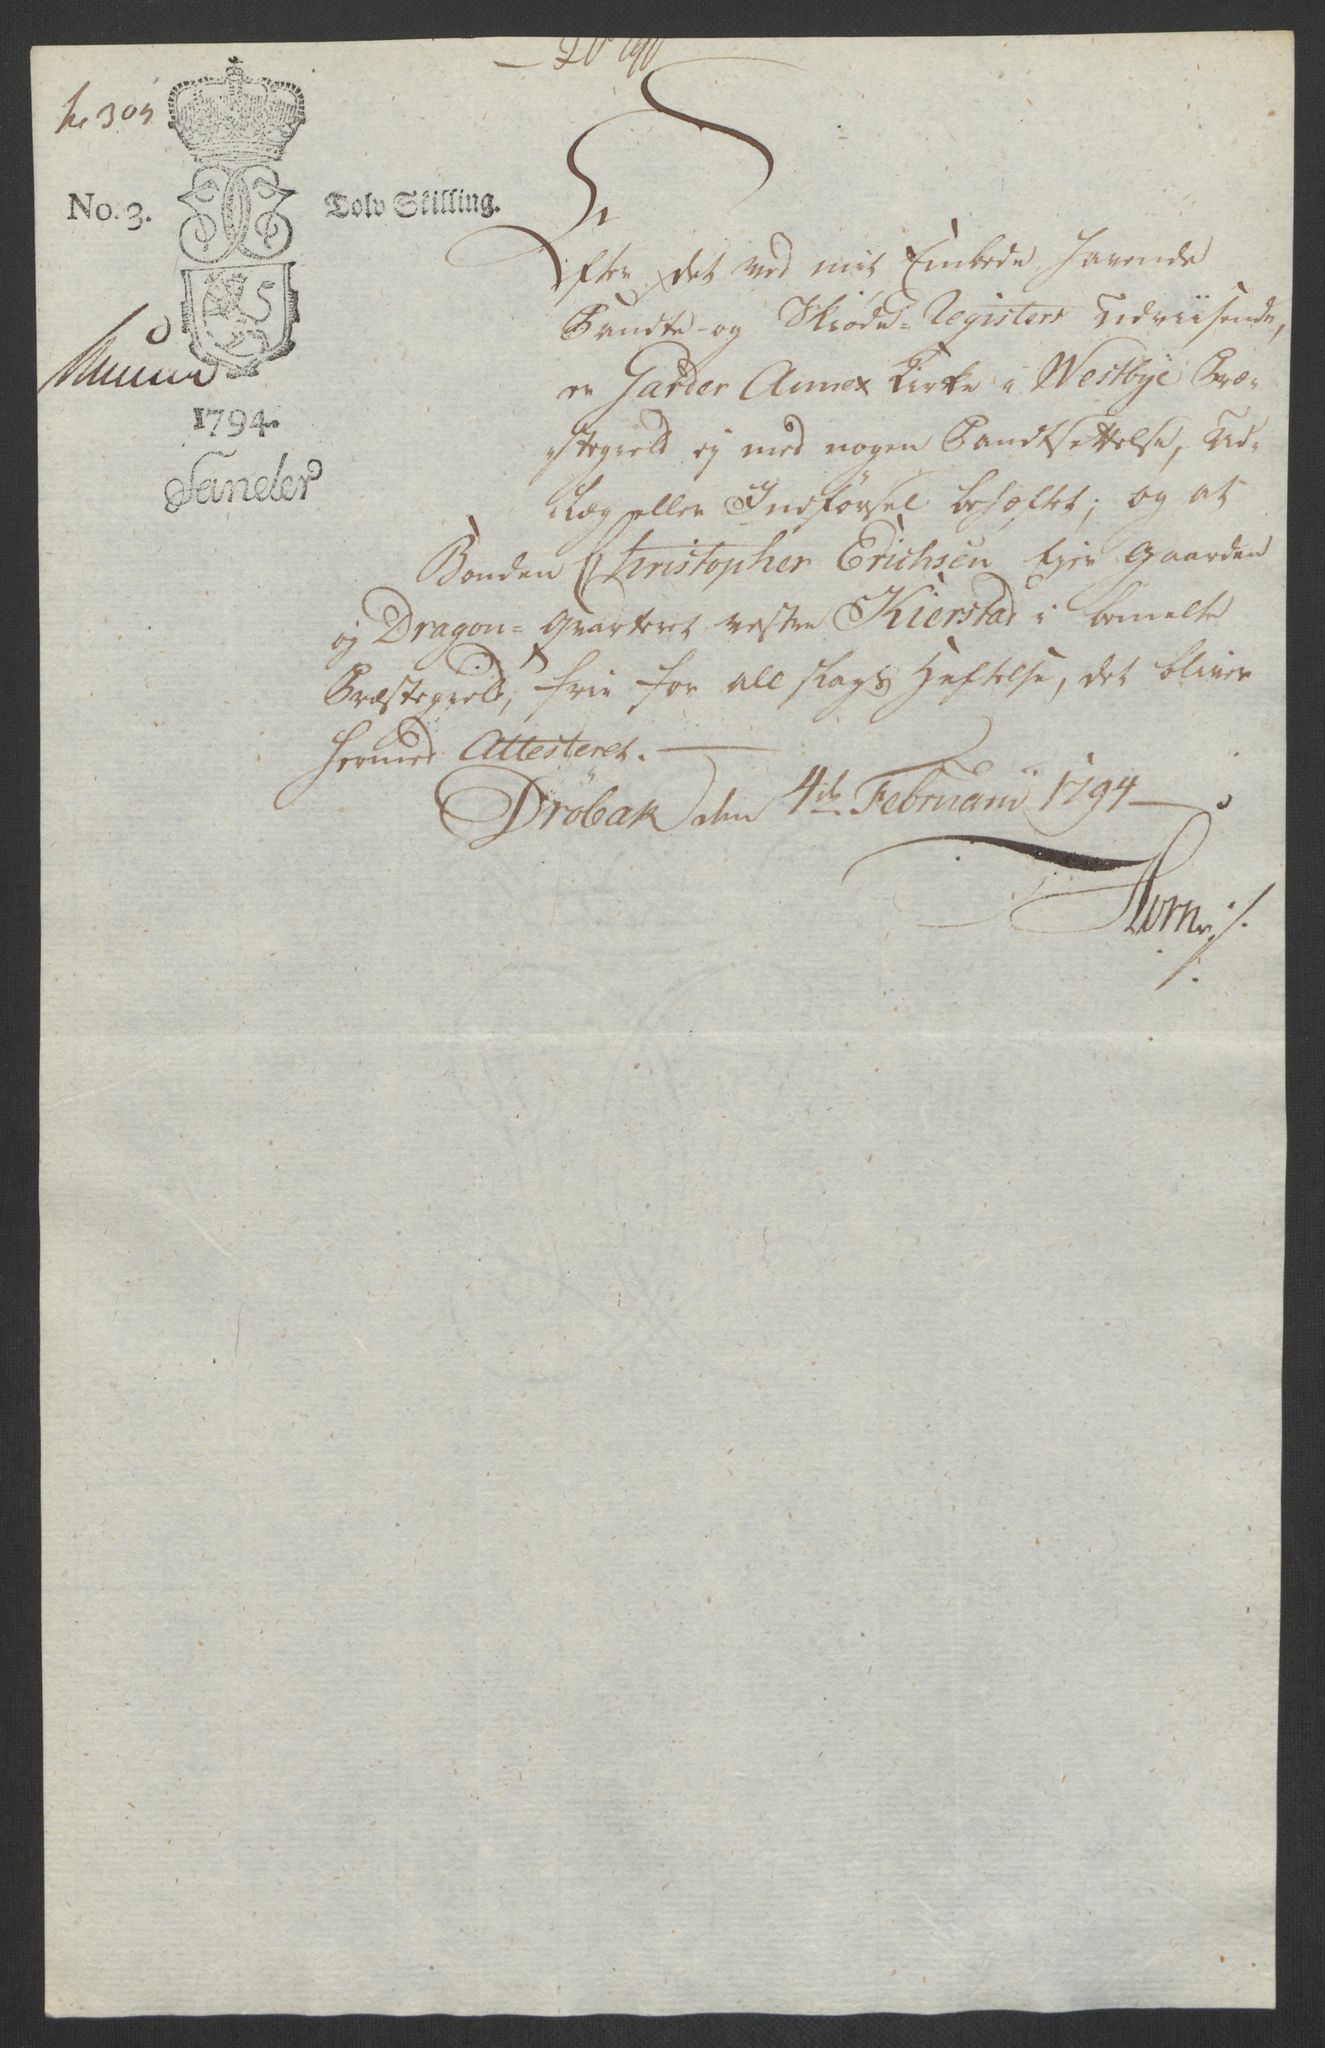 No. 3.
Tolv Skilling.
1794.
Efter det ved mit Embede havende
Pandte- og Skiøde-Registers Udviisende,
er Garder Annex Kirke i Westbye Præ-
stegield ej med nogen Pandtsættelse, Ud-
læg eller Indførsel behæftet; og at
Bonden Christopher Erichsen Ejer Gaarden
og Dragon-Qvarteret vestre Kierstad i bemelte
Præstegield, frie for all slags Heftelse, det bliver
hermed Attesteret.
Drøbak den 4de Februarii 1794
Horn